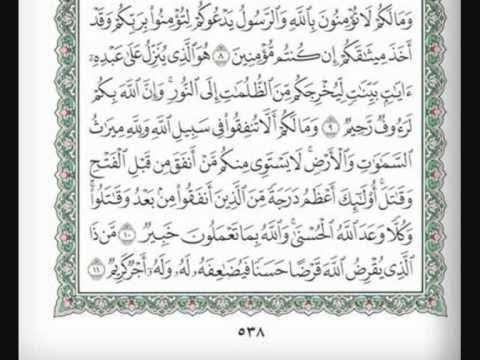 وَمَا لَكُمْ لَا تُؤْمِنُونَ بِٱللَّهِ وَٱلرَّسُولُ يَدْعُوكُمْ لِتُؤْمِنُوا۟ بِرَبِّكُمْ وَقَدْ
أَخَذَ مِيثَٰقَكُمْ إِن كُنتُم مُّؤْمِنِينَ ٨ هُوَ ٱلَّذِى يُنَزِّلُ عَلَىٰ عَبْدِهِۦٓ
ءَايَٰتٍۭ بَيِّنَٰتٍ لِّيُخْرِجَكُم مِّنَ ٱلظُّلُمَٰتِ إِلَى ٱلنُّورِ ۚ وَإِنَّ ٱللَّهَ بِكُمْ
لَرَءُوفٌ رَّحِيمٌ ٩ وَمَا لَكُمْ أَلَّا تُنفِقُوا۟ فِى سَبِيلِ ٱللَّهِ وَلِلَّهِ مِيرَٰثُ
ٱلسَّمَٰوَٰتِ وَٱلْأَرْضِ ۚ لَا يَسْتَوِى مِنكُم مَّنْ أَنفَقَ مِن قَبْلِ ٱلْفَتْحِ
وَقَٰتَلَ ۚ أُو۟لَٰٓئِكَ أَعْظَمُ دَرَجَةً مِّنَ ٱلَّذِينَ أَنفَقُوا۟ مِنۢ بَعْدُ وَقَٰتَلُوا۟ ۚ
وَكُلًّا وَعَدَ ٱللَّهُ ٱلْحُسْنَىٰ ۚ وَٱللَّهُ بِمَا تَعْمَلُونَ خَبِيرٌ ١٠ مَّن ذَا
ٱلَّذِى يُقْرِضُ ٱللَّهَ قَرْضًا حَسَنًا فَيُضَٰعِفَهُۥ لَهُۥ وَلَهُۥٓ أَجْرٌ كَرِيمٌ ١١
٥٣٨